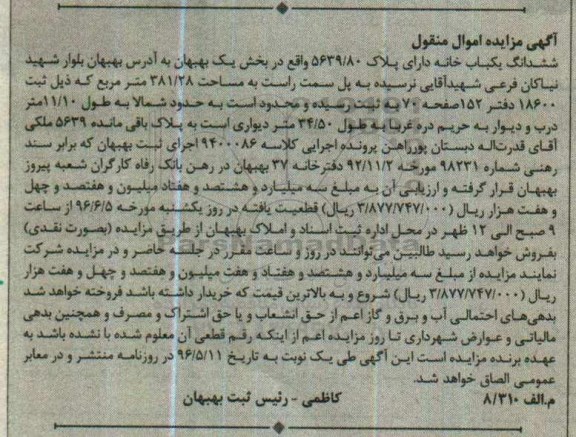 آگهی مزایده اموال منقول
ششدانگ یکباب خانه دارای پلاک ۵۶۳۹/۸۰ واقع در بخش یک بهبهان به آدرس بهبهان بلوار شهید
نیاکان فرعی شهیدآقایی نرسیده به پل سمت راست به مساحت ۳۸۱/۲۸ متر مربع که ذیل ثبت
۱۸۶۰۰ دفتر ۱۵۲صفحه ۷۰ به ثبت رسیده و محدود است به حدود شمالا به طول ۱۱/۱۰متر
درب و دیوار به حریم دره غربا به طول ۳۴/۵۰ متر دیواری است به پلاک باقی مانده ۵۶۳۹ ملکی
آقای قدرت‌اله دبستان پورراهن پرونده اجرایی کلاسه ۹۴۰۰۰۸۶ اجرای ثبت بهبهان که برابر سند
رهنی شماره ۹۸۲۳۱ مورخه ۹۲/۱۱/۲ دفترخانه ۳۷ بهبهان در رهن بانک رفاه کارگران شعبه پیروز
بهبهان قرار گرفته و ارزیابی آن به مبلغ سه میلیارد و هشتصد و هفتاد میلیون و هفتصد و چهل
و هفت هزار ریال (۳/۸۷۷/۷۴۷/۰۰۰ ریال) قطعیت یافته در روز یکشنبه مورخه ۹۶/۶/۵ از ساعت
۹ صبح الی ۱۲ ظهر در محل اداره ثبت اسناد و املاک بهبهان از طریق مزایده (بصورت نقدی)
بفروش خواهد رسید طالبین می‌توانند در روز و ساعت مقرر در جلسه حاضر و در مزایده شرکت
نمایند مزایده از مبلغ سه میلیارد و هشتصد و هفتاد و هفت میلیون و هفتصد و چهل و هفت هزار
ریال (۳/۸۷۷/۷۴۷/۰۰۰ ریال) شروع و به بالاترین قیمت که خریدار داشته باشد فروخته خواهد شد
بدهی‌های احتمالی آب و برق و گاز اعم از حق انشعاب و یا حق اشتراک و مصرف و همچنین بدهی
مالیاتی و عوارض شهرداری تا روز مزایده اعم از اینکه رقم قطعی آن معلوم شده یا نشده باشد به
عهده برنده مزایده است این آگهی طی یک نوبت به تاریخ ۹۶/۵/۱۱ در روزنامه منتشر و در معابر
عمومی الصاق خواهد شد.
م.الف ۸/۳۱۰ کاظمی - رئیس ثبت بهبهان
ParsNamadData